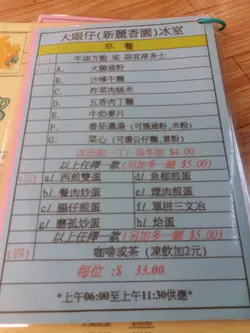 大眼仔(新麗香園)冰室
早餐
牛油方飽 或 蒜茸厚多士
A. 火腿通粉
B. 沙嗲牛麵
C. 炸菜肉絲米
D. 五香肉丁麵
E. 牛奶麥片
F. 番茄濃湯 (可選通粉,米粉)
G. 菜心 (可選公仔麵,意粉)
改出前一丁/ 烏冬加 $4.00
以上任擇一款(另加多一麵 $5.00)
a) 西煎雙蛋 d) 魚柳煎蛋
b) 餐肉炒蛋 e) 煙肉煎蛋
c) 腸仔煎蛋 f) 單拼三文冶
g) 蘑菰炒蛋 h) 焓蛋
以上任擇一款(另加多一麵 $5.00)
(四) 咖啡或茶 (凍飲加2元)
每位 :$ 33.00
*上午06:00至上午11:30供應*